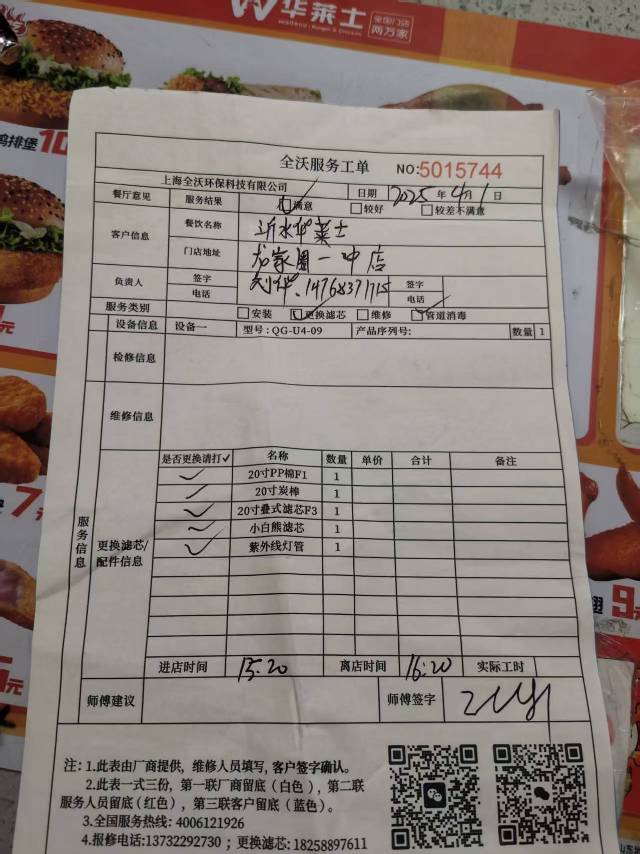 华莱士
全国门店
两万家
鸡排堡 10
全沃服务工单 NO:5015744
上海全沃环保科技有限公司 日期 2025年4月1日
餐厅意见 服务结果 满意 较好 较差不满意
客户信息 餐饮名称 沂水华莱士
门店地址 龙家圈一中店
负责人 签字 签字
电话 14768371715 电话
服务类别 安装 更换滤芯 维修 管道消毒
设备信息 设备一 型号:QG-U4-09 产品序列号: 数量 1
检修信息
维修信息
服务信息
更换滤芯/配件信息
是否更换请打✓ 名称 数量 单价 合计 备注
✓ 20寸PP棉F1 1
✓ 20寸炭棒 1
✓ 20寸叠式滤芯F3 1
✓ 小白熊滤芯 1
✓ 紫外线灯管 1
进店时间 15:20 离店时间 16:20 实际工时
师傅建议 师傅签字
注:1.此表由厂商提供,维修人员填写,客户签字确认。
2.此表一式三份,第一联厂商留底(白色),第二联
服务人员留底(红色),第三联客户留底(蓝色)。
3.全国服务热线:4006121926
4.报修电话:13732292730;更换滤芯:18258897611
7元
元
9元